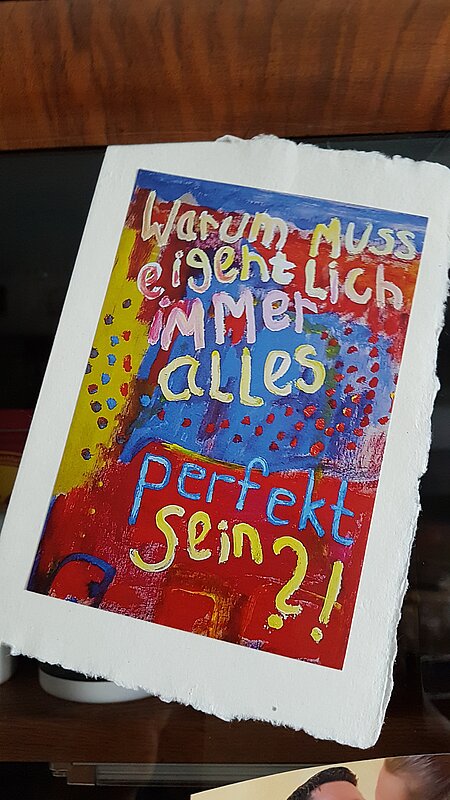 Warum muss
eigentlich
immer
alles
perfekt
sein?!